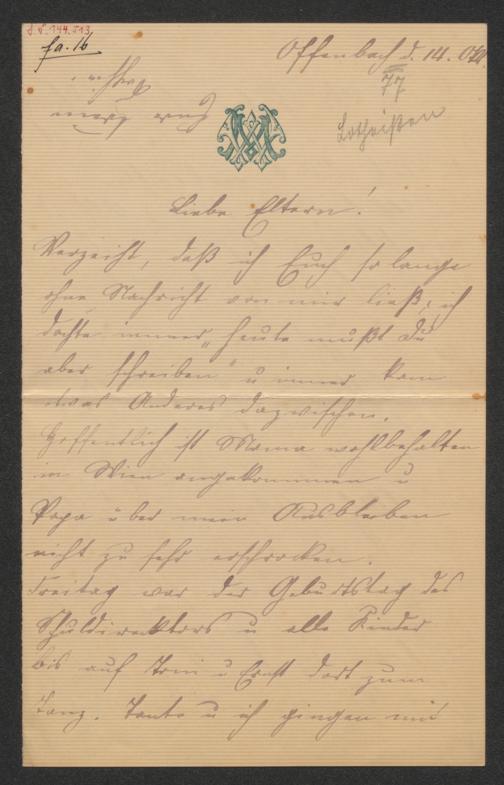 fa. 16
Offenbach d. 14. Okt
77
Lotheißen
Liebe Eltern!
Verzeiht, daß ich Euch so lange
ohne Nachricht von mir ließ, ich
dachte immer „heute mußt du
aber schreiben“ u immer kam
etwas Anderes dazwischen.
Hoffentlich ist Mama wohlbehalten
in Wien angekommen u
Papa über mein Ausbleiben
nicht zu sehr erschrocken.
Freitag war der Geburtstag des
Schuldirektors u alle Kinder
bis auf u Ernst dort zum
Tanz. Tante u ich gingen mit